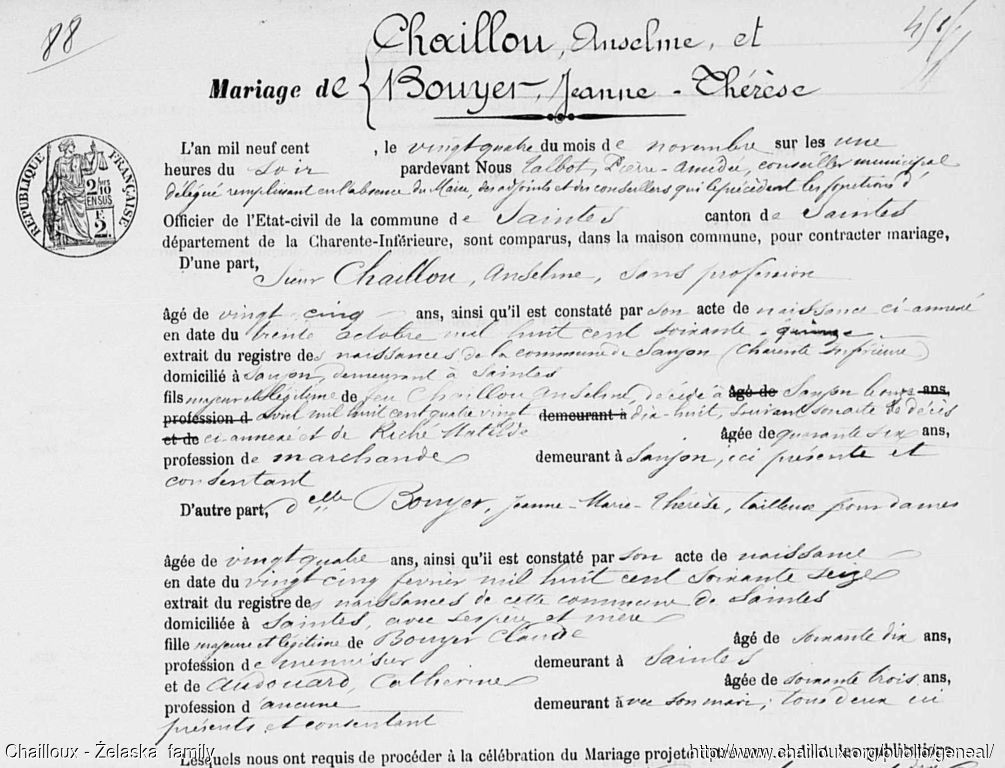 88
Chaillou, Anselme, et
Mariage de { Bouyer, Jeanne-Thérèse
RÉPUBLIQUE FRANÇAISE
2 10mes EN SUS
F 2.
L'an mil neuf cent , le vingt quatre du mois de novembre sur les une
heures du soir pardevant Nous Talbot, Pierre-Amédée, conseiller municipal
délégué remplissant en l'absence du Maire, des adjoints et des conseillers qui le précèdent les fonctions d'
Officier de l'Etat-civil de la commune de Saintes canton de Saintes
département de la Charente-Inférieure, sont comparus, dans la maison commune, pour contracter mariage,
D'une part, Sieur Chaillou, Anselme, sans profession
âgé de vingt cinq ans, ainsi qu'il est constaté par son acte de naissance ci-annexé
en date du trente octobre mil huit cent soixante-quinze
extrait du registre des naissances de la commune de Saujon (Charente Inférieure)
domicilié à Saujon, demeurant à Saintes
fils majeur et légitime de feu Chaillou Anselme, décédé à âgé de Saujon le onze ans,
profession d avril mil huit cent quatre vingt demeurant à dix-huit, suivant son acte de décès
et de ci-annexé et de Riché Matilde âgée de quarante six ans,
profession de marchande demeurant à Saujon, ici présente et
consentant
D'autre part, delle Bouyer, Jeanne-Marie-Thérèse, tailleuse pour dames
âgée de vingt quatre ans, ainsi qu'il est constaté par son acte de naissance
en date du vingt cinq février mil huit cent soixante seize
extrait du registre des naissances de cette commune de Saintes
domiciliée à Saintes, avec ses père et mère
fille majeure et légitime de Bouyer Claude âgé de soixante dix ans,
profession de menuisier demeurant à Saintes
et de Audouard, Catherine âgée de soixante trois ans,
profession d'aucune demeurant avec son mari, tous deux ici
présents et consentant
Lesquels nous ont requis de procéder à la célébration du Mariage projeté
Chailloux - Żelaska family
http://www.chailloux.org/photo/geneal/